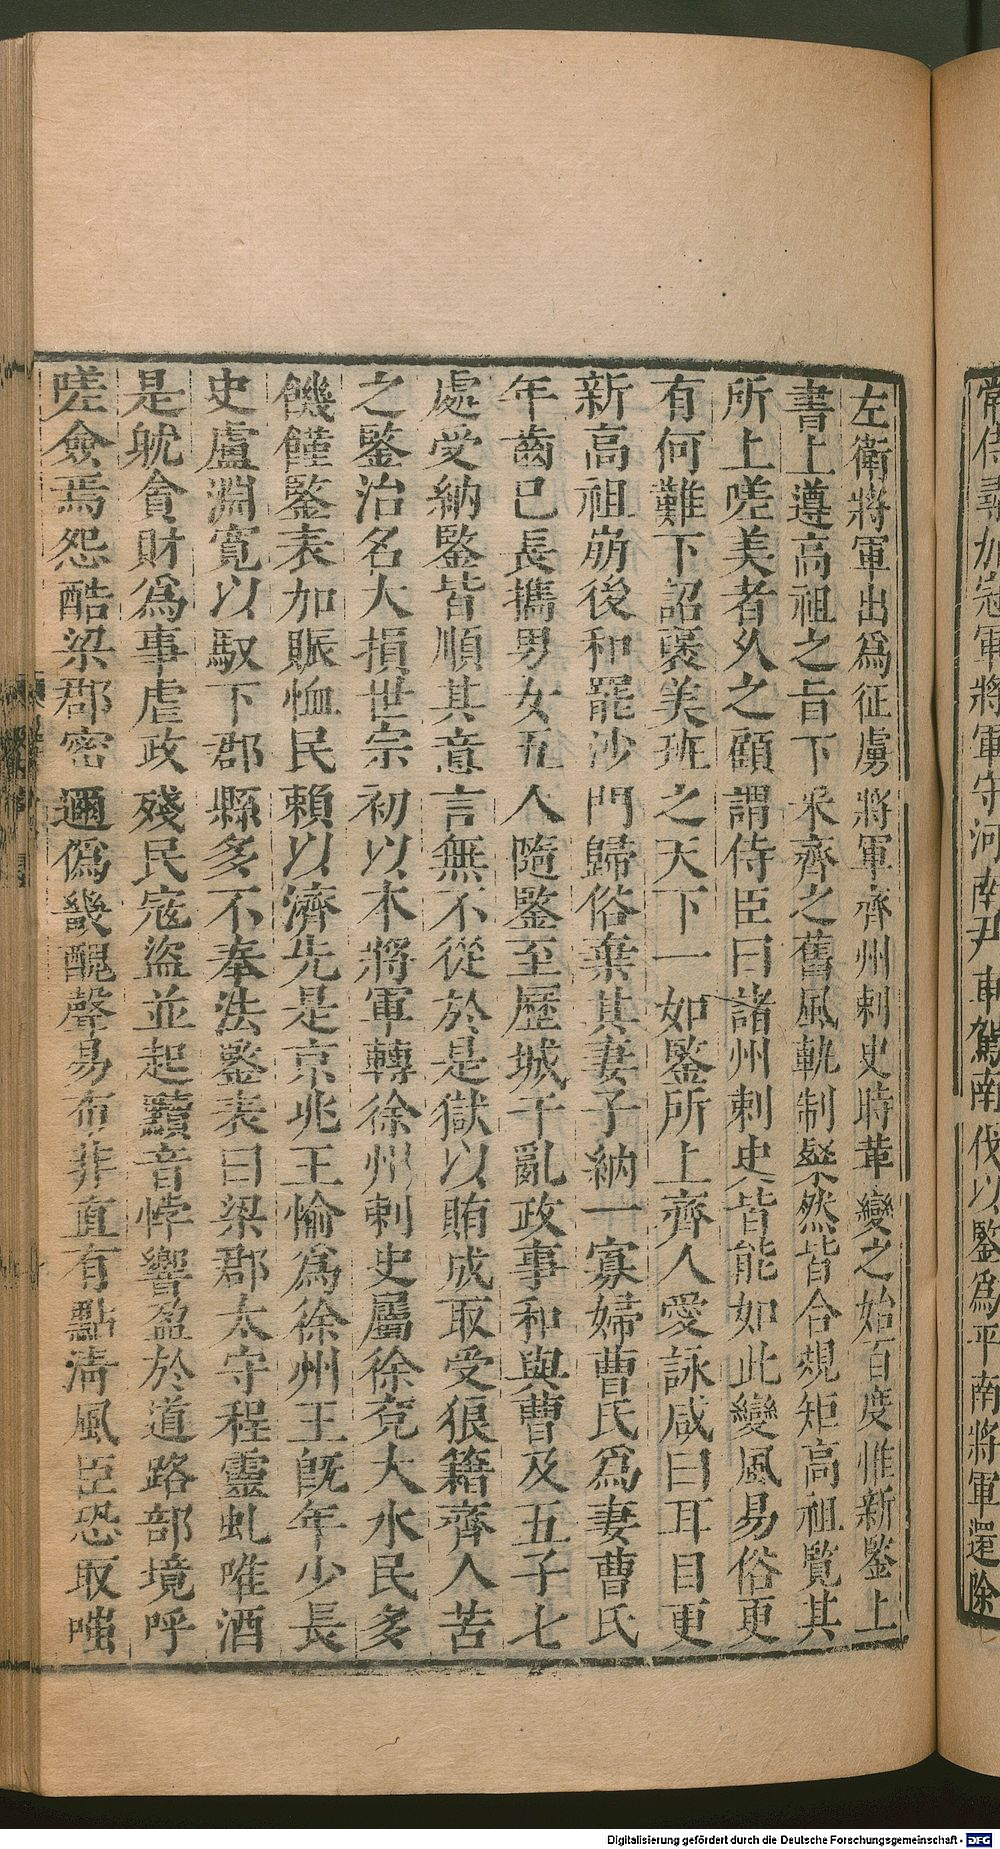 常侍尋加冠軍將軍守河南尹車駕南伐以鑒爲平南將軍還除
左衛將軍出爲征虜將軍齊州刺史時革變之始百度惟新鑒上
書上遵高祖之旨下采齊之舊風軌制粲然皆合規矩高祖覽其
所上嗟美者乆之顧謂侍臣曰諸州刺史皆能如此變風易俗更
有何難下詔褒美班之天下一如鑒所上齊人愛詠咸曰耳目更
新高祖崩後和罷沙門歸俗棄其妻子納一寡婦曹氏爲妻曹氏
年齒已長攜男女五人隨鑒至歷城干亂政事和與曹及五子七
處受納鑒皆順其意言無不從於是獄以賄成取受狼籍齊人苦
之鑒治名大損世宗初以本將軍轉徐州刺史屬徐兖大水民多
饑饉鑒表加賑恤民賴以濟先是京兆王愉爲徐州王旣年少長
史盧淵寬以馭下郡縣多不奉法鑒表曰梁郡太守程靈虬唯酒
是躭貪財爲事虐政殘民寇盜並起黷音悖響盈於道路部境呼
嗟僉焉怨酷梁郡密邇僞畿醜聲易布非直有點清風臣恐取嗤
Digitalisierung gefördert durch die Deutsche Forschungsgemeinschaft - DFG